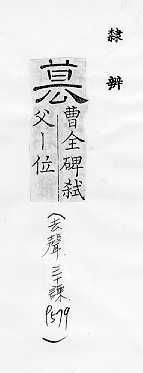 隸辨
篡
曹全碑弒
父丨位
(去聲 三十諫 P579)